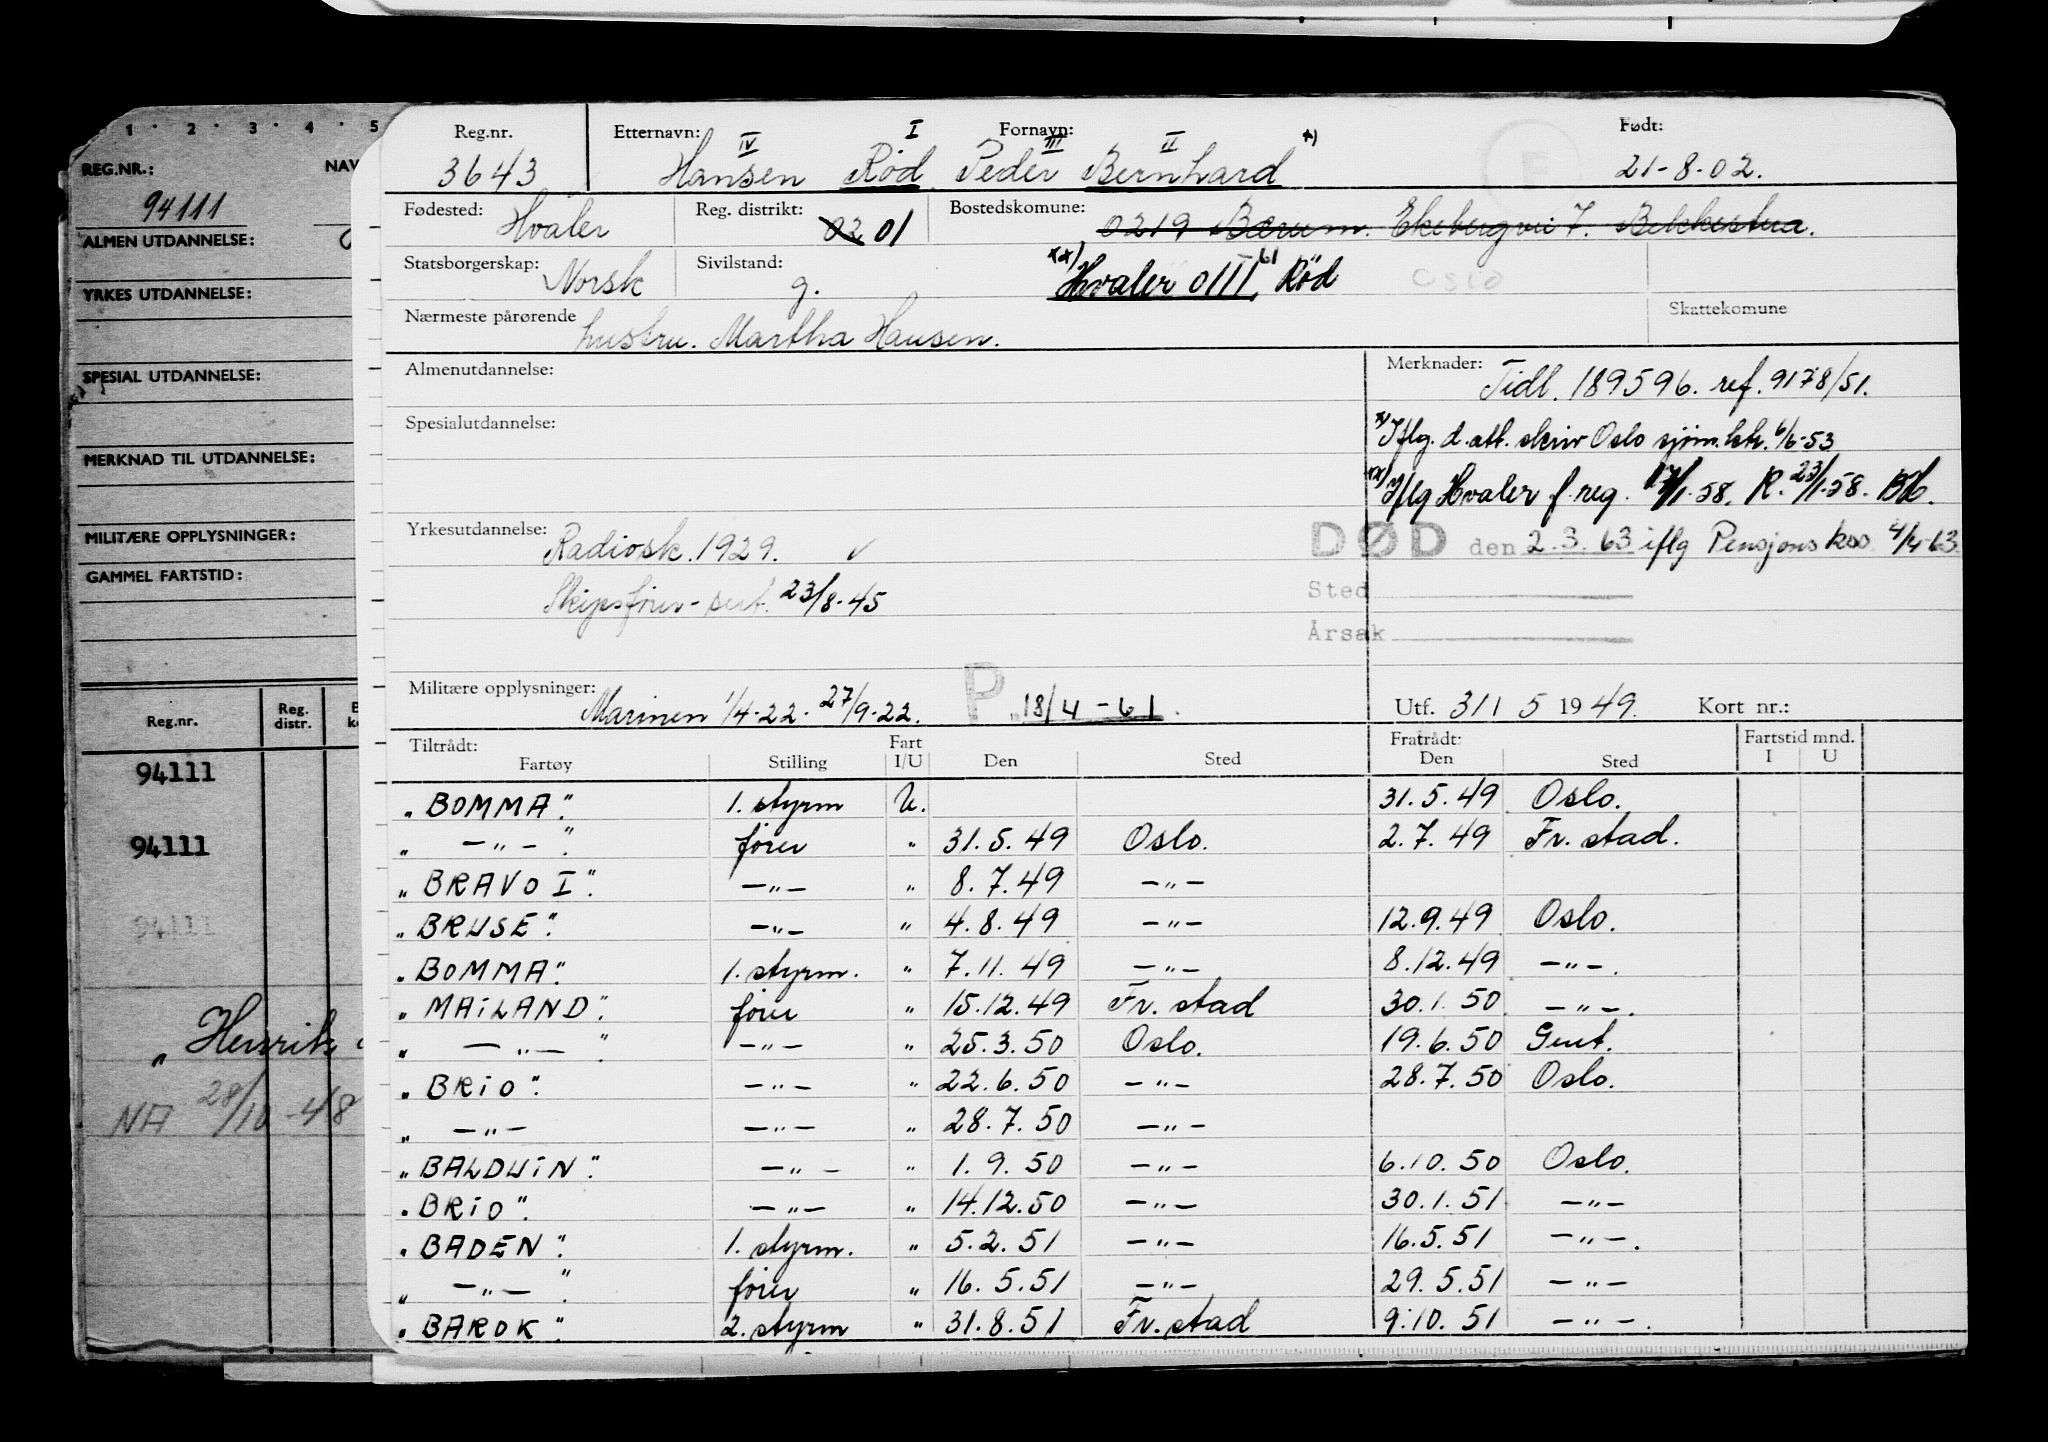 1 · 2 · 3 · 4 · 5
REG.NR.: NAV
94111
ALMEN UTDANNELSE:
YRKES UTDANNELSE:
SPESIAL UTDANNELSE:
MERKNAD TIL UTDANNELSE:
MILITÆRE OPPLYSNINGER:
GAMMEL FARTSTID:
Reg.nr. Reg. distr.
94111
94111
94111
„ Henrik
NA 28/10-48
Reg.nr. Etternavn: Fornavn: Født:
IV I III II x)
3643 Hansen Rød Peder Bernhard 21-8-02.
Fødested: Hvaler Reg. distrikt: 02 01 Bostedskomune: 0219 Bærum. Ekebergvei 7. Bekkestua.
Statsborgerskap: Norsk Sivilstand: g. xx) Hvaler 0111, 61 Rød Oslo
Nærmeste pårørende hustru. Martha Hansen. Skattekomune
Almenutdannelse: Merknader: Tidl. 189596. ref. 9178/51.
Spesialutdannelse: x) Iflg. d. att. skriv Oslo sjøm.ktr. 6/6-53
xx) Iflg Hvaler f.reg. 17/1-58. R. 23/1-58. BH.
Yrkesutdannelse: Radiosk. 1929. ✓ DØD den 2.3.63 iflg Pensjonskas 4/4-63
Skipsfører-sert. 23/8-45 Sted
Årsak
Militære opplysninger: Marinen 1/4-22. 27/9-22. P 18/4-61. Utf. 31 / 5 1949. Kort nr.:
Tiltrådt: Fart Fratrådt: Fartstid mnd.
Fartøy Stilling I/U Den Sted Den Sted I U
„BOMMA". 1. styrm U. 31.5.49 Oslo.
„ —„— ". fører „ 31.5.49 Oslo. 2.7.49 Fr. stad.
„BRAVO I". —„— „ 8.7.49 —„—
„BRUSE". —„— „ 4.8.49 —„— 12.9.49 Oslo.
„BOMMA". 1. styrm. „ 7.11.49 —„— 8.12.49 —„—.
„MAiLAND". fører „ 15.12.49 Fr. stad 30.1.50 —„—.
„ —„— " —„— „ 25.3.50 Oslo. 19.6.50 Gent.
„BRiO". —„— „ 22.6.50 —„— 28.7.50 Oslo.
„ —„— —„— „ 28.7.50 —„—
„BALDUiN". —„— „ 1.9.50 —„— 6.10.50 Oslo.
„BRiO". —„— „ 14.12.50 —„— 30.1.51 —„—
„BADEN". 1. styrm. „ 5.2.51 —„— 16.5.51 —„—.
„ —„— ". fører „ 16.5.51 —„— 29.5.51 —„—
„BAROK". 2. styrm „ 31.8.51 Fr. stad 9.10.51 —„—.